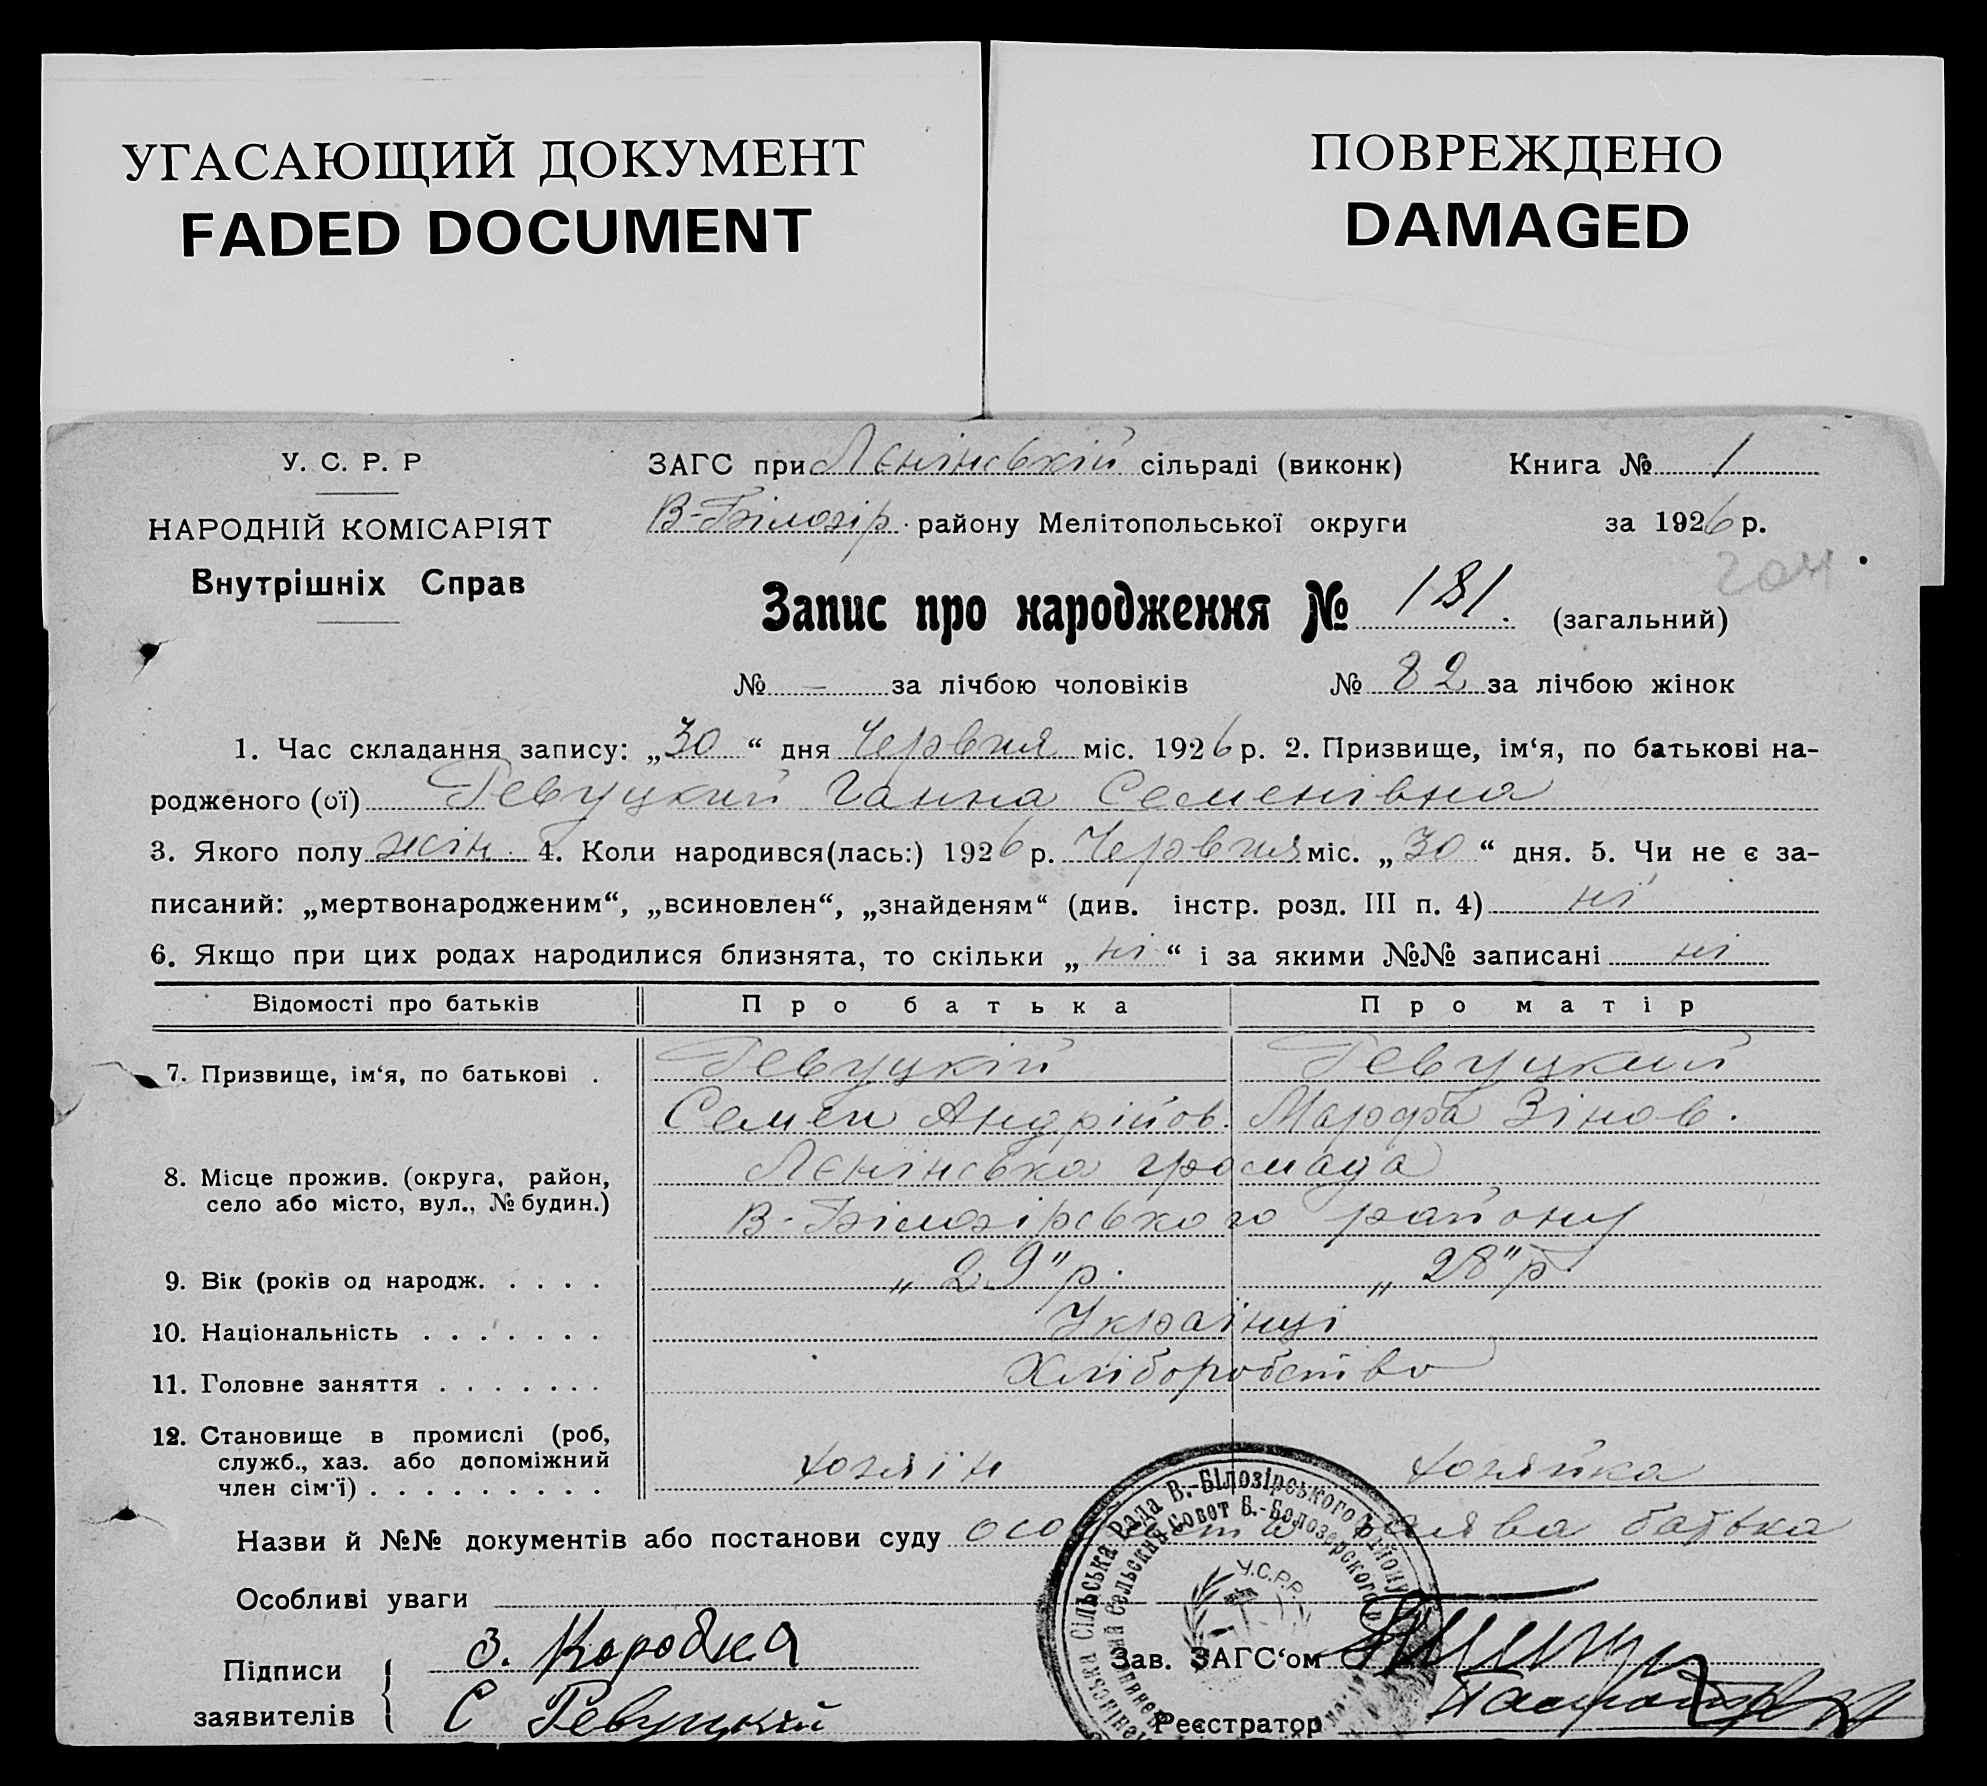 УГАСАЮЩИЙ ДОКУМЕНТ
FADED DOCUMENT
ПОВРЕЖДЕНО
DAMAGED
У. С. Р. Р
НАРОДНІЙ КОМІСАРІЯТ
Внутрішніх Справ
ЗАГС при Лєнінській сільраді (виконк) Книга № 1
В-Білозір. району Мелітопольської округи за 1926 р.
204
Запис про народження № 181. (загальний)
№ — за лічбою чоловіків № 82 за лічбою жінок
1. Час складання запису: „30“ дня Червня міс. 1926 р. 2. Призвище, ім‘я, по батькові на-
родженого (ої) Ревуцкий Ганна Семенівна
3. Якого полу жін. 4. Коли народився(лась:) 1926 р. Червня міс. „30“ дня. 5. Чи не є за-
писаний: „мертвонародженим“, „всиновлен“, „знайденям“ (див. інстр. розд. III п. 4) ні
6. Якщо при цих родах народилися близнята, то скільки „ні“ і за якими №№ записані ні
Відомості про батьків Про батька Про матір
7. Призвище, ім‘я, по батькові . Ревуцкій Ревуцкий
Семен Андрійов. Марфа Зінов.
8. Місце прожив. (округа, район, Лєнінська громада
село або місто, вул., № будин.) В-Білозірського району
9. Вік (років од народж. . . . . „29" р. „28" р.
10. Національність . . . . . . . Українці
11. Головне заняття . . . . . . . Хліборобство
12. Становище в промислі (роб,
служб., хаз. або допоміжний хозяїн хозяйка
член сім'ї) . . . . . . . . .
Назви й №№ документів або постанови суду особиста заява батька
Особливі уваги
Підписи З. Коробка
заявителів С Ревуцкій
Зав. ЗАГС‘ом
Реєстратор
Сільська Рада В.-Білозірського Району
Сельский Совет Б.-Белозерского
У.С.Р.Р.